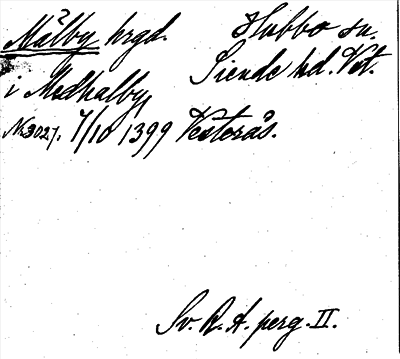 Målby hrgd. Hubbo sn.
Siende hd. Vst.
i Medhalby,
No 3027. 7/10 1399 Vesterås.
Sv. R. A. perg. II.